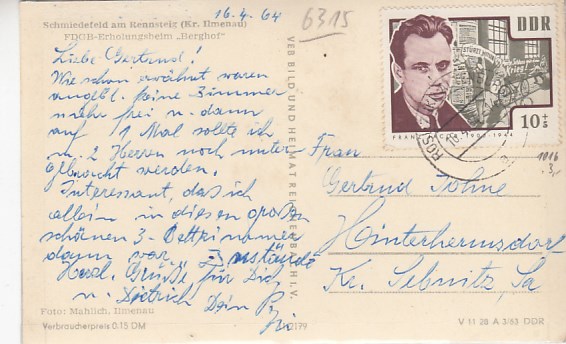 16.4.64
6315
Schmiedefeld am Rennsteig (Kr. Ilmenau)
FDGB-Erholungsheim „Berghof“
Liebe Gertrud!
Wie schon erwähnt waren
angebl. keine Zimmer
mehr frei u. dann
auf 1 Mal sollte ich
m. 2 Herren noch unter
gebracht werden.
Interessant, das ich
allein in diesen großen
schönen 3-Bettzimmer
dann war. Zustände
Herzl. Grüße für Dich
u. Dietrich Dein
Foto: Mahlich, Ilmenau
Verbraucherpreis 0.15 DM
VEB BILD UND HEIMAT REICHENBACH I. V.
DDR
10+5
1016
Frau
Gertrud Söhne
Hinterhermsdorf
Kr. Sebnitz, Sa
V 11 28 A 3/63 DDR